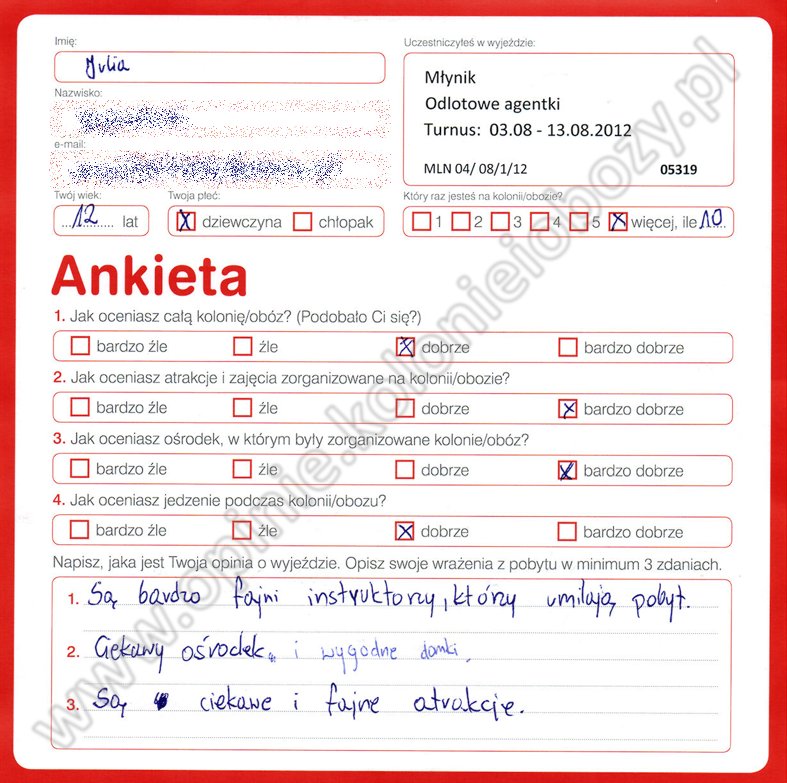 Imię:
Julia
Nazwisko:
e-mail:
Twój wiek:
12 lat
Twoja płeć:
dziewczyna chłopak
Uczestniczyłeś w wyjeździe:
Młynik
Odlotowe agentki
Turnus: 03.08 - 13.08.2012
MLN 04/ 08/1/12 05319
Który raz jesteś na kolonii/obozie?
1 2 3 4 5 więcej, ile 10
Ankieta
1. Jak oceniasz całą kolonię/obóz? (Podobało Ci się?)
bardzo źle źle dobrze bardzo dobrze
2. Jak oceniasz atrakcje i zajęcia zorganizowane na kolonii/obozie?
bardzo źle źle dobrze bardzo dobrze
3. Jak oceniasz ośrodek, w którym były zorganizowane kolonie/obóz?
bardzo źle źle dobrze bardzo dobrze
4. Jak oceniasz jedzenie podczas kolonii/obozu?
bardzo źle źle dobrze bardzo dobrze
Napisz, jaka jest Twoja opinia o wyjeździe. Opisz swoje wrażenia z pobytu w minimum 3 zdaniach.
1. Są bardzo fajni instruktorzy, którzy umilają pobyt.
2. Ciekawy ośrodek i wygodne domki.
3. Są ciekawe i fajne atrakcje.
www.opinie.kolonieiobozy.pl